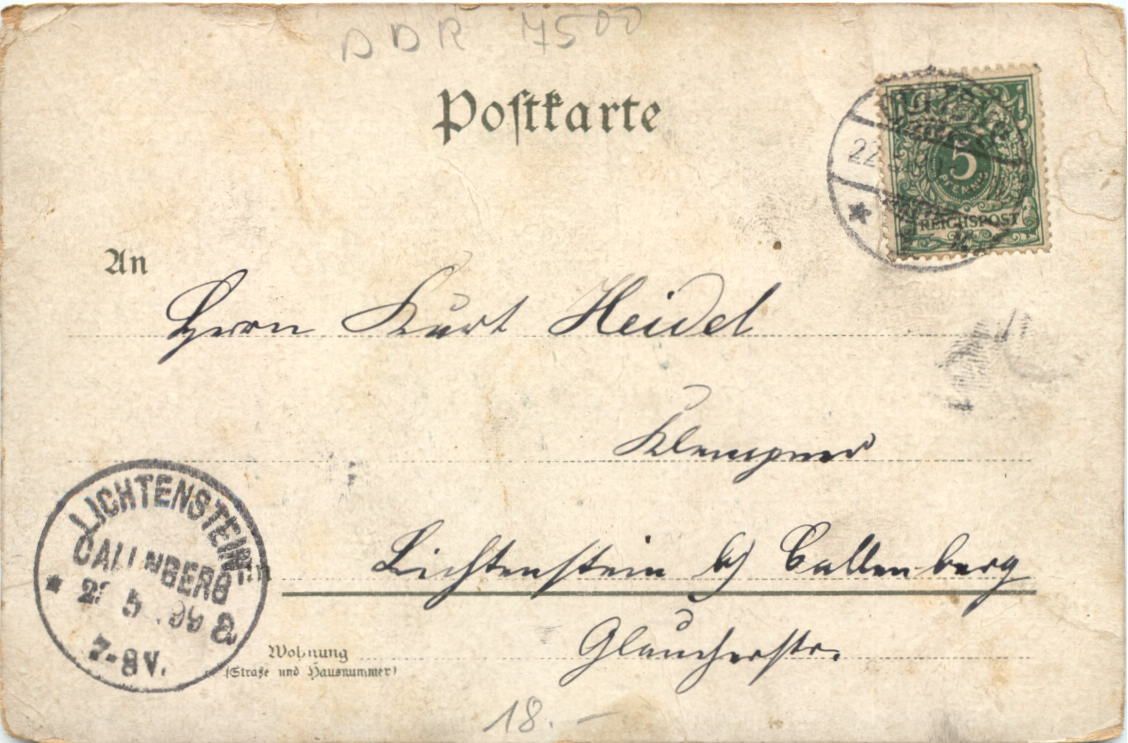 DDR 7500
Postkarte
22.
5
PFENNIG
REICHSPOST
An
Herrn Kurt Heidel
Klempner
Lichtenstein b/ Callenberg
LICHTENSTEIN=
CALLNBERG
* 5 .99 a
7-8V.
Wohnung
(Straße und Hausnummer)
Glaucherstr.
18.-